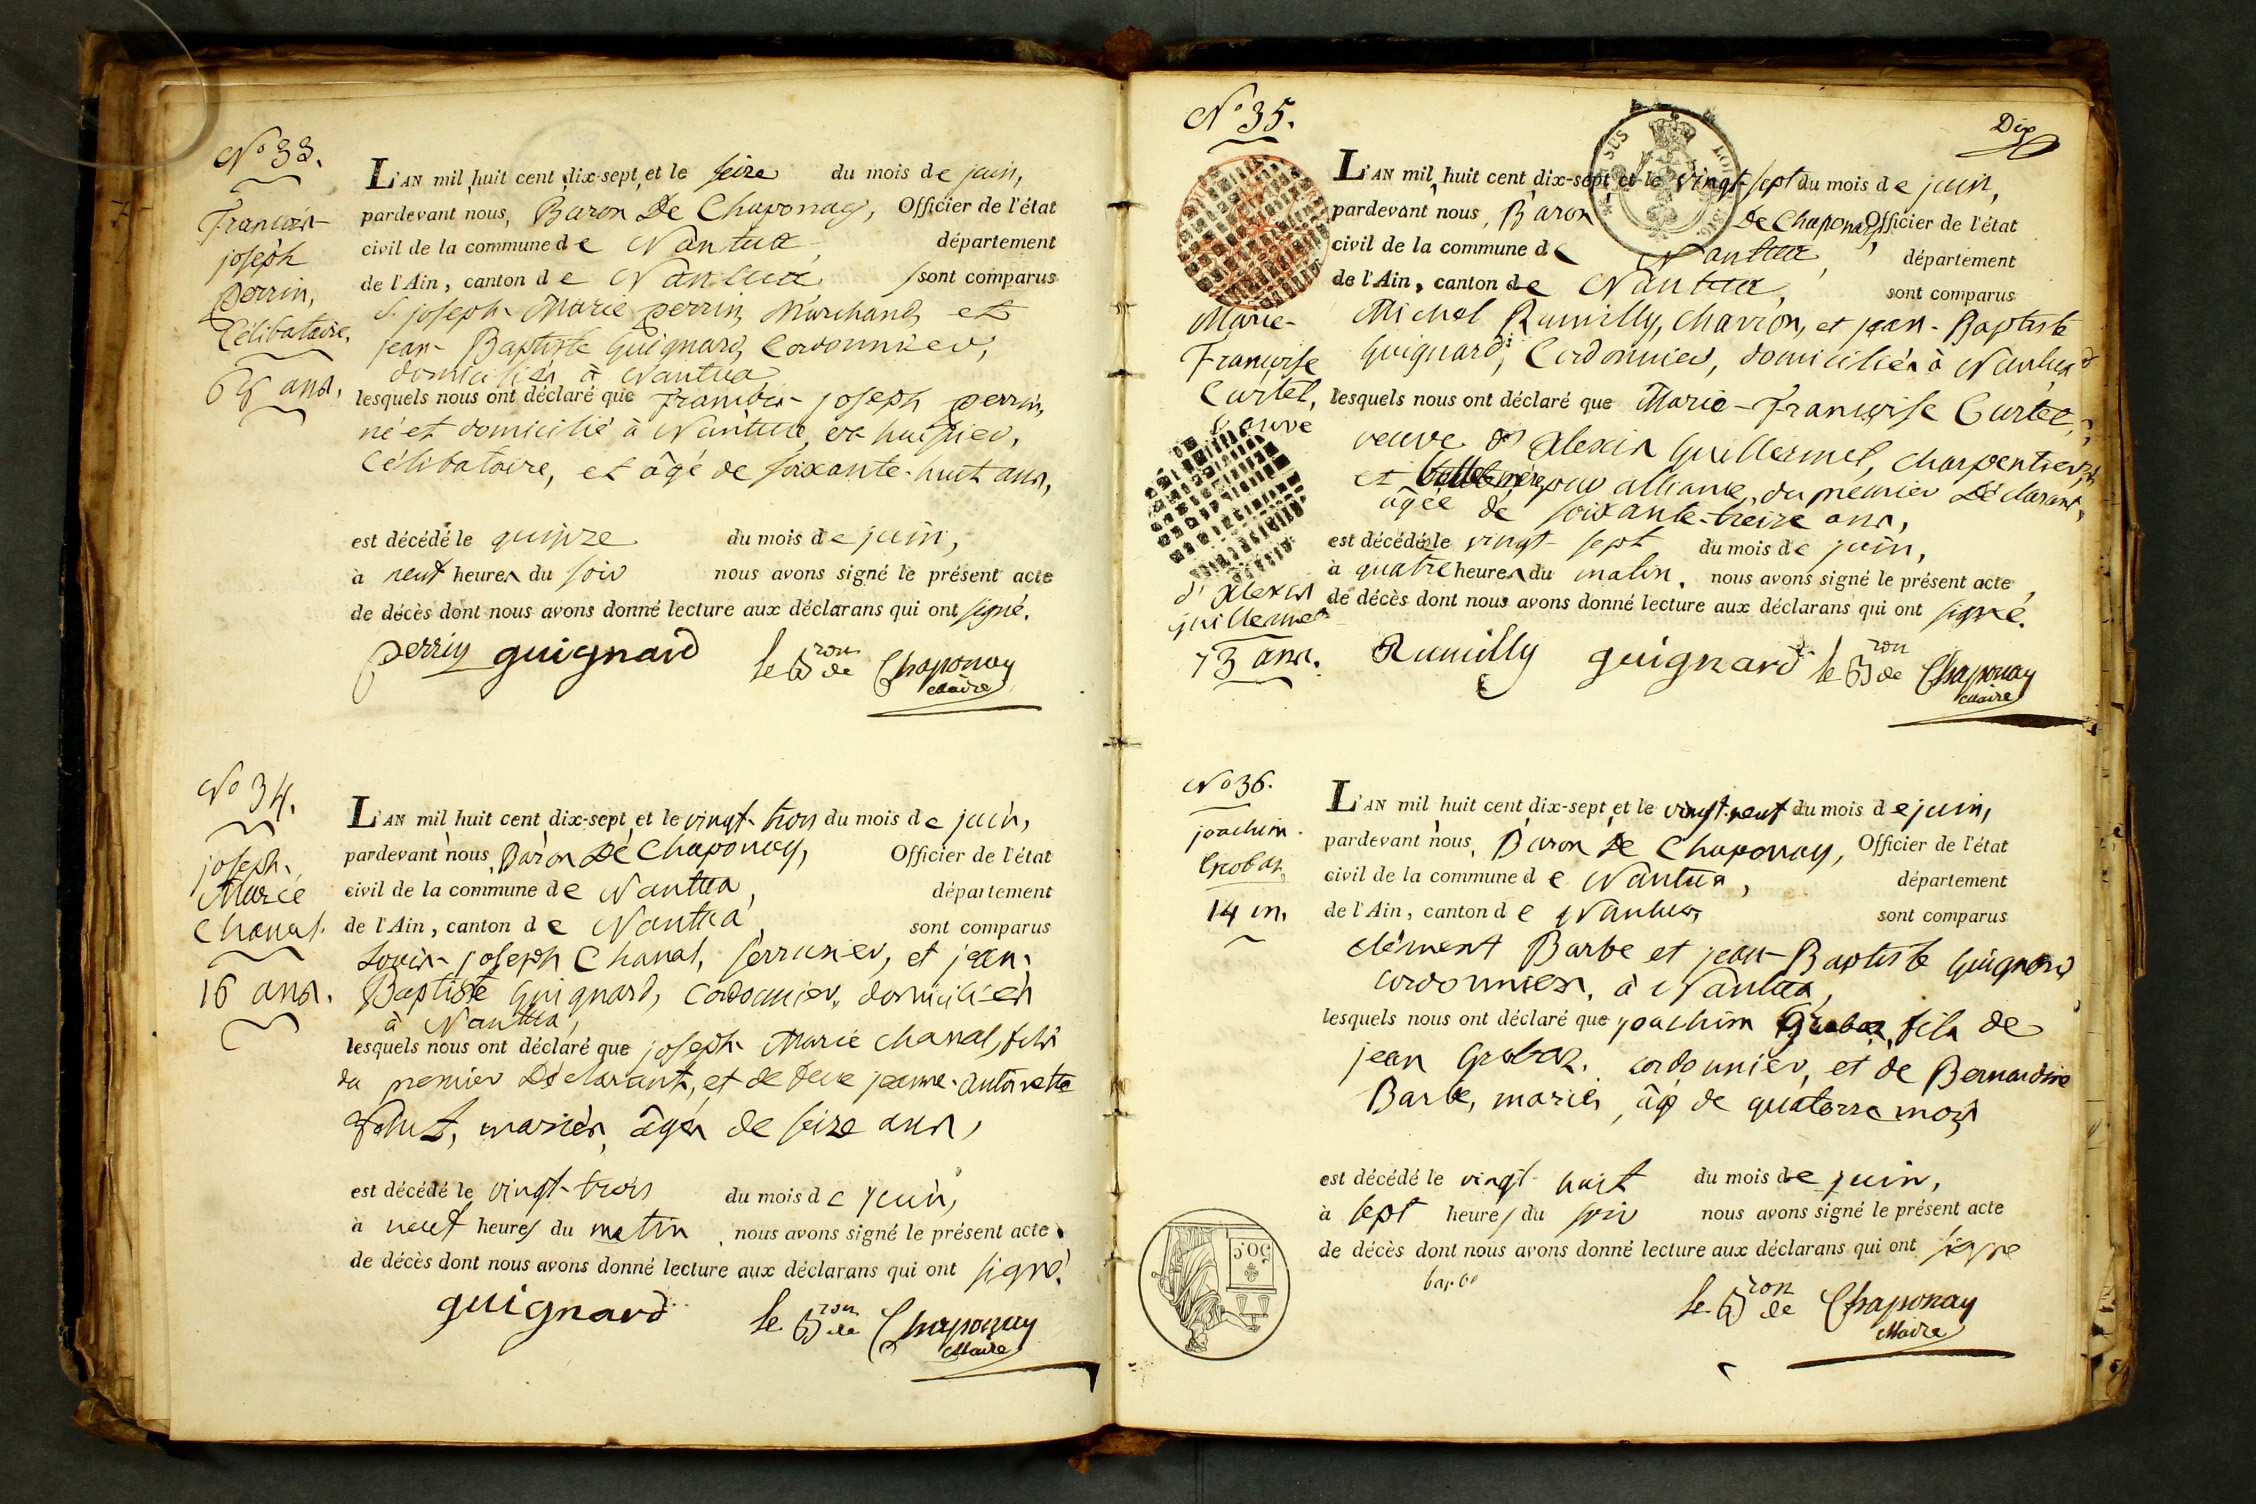 N° 33.
François-
joseph
perrin,
Célibataire,
68 ans.
L'AN mil huit cent dix-sept, et le seize du mois de juin,
pardevant nous, Baron De Chaponay, Officier de l'état
civil de la commune de Nantua département
de l'Ain, canton de Nantua sont comparus
S. joseph-Marie perrin, Marchand, et
jean-Baptiste Guignard, Cordonnier,
domiciliés à Nantua
lesquels nous ont déclaré que François-joseph perrin,
né et domicilié à Nantua, ex huissier,
Célibataire, et âgé de soixante-huit ans,
est décédé le quinze du mois de juin,
à neuf heures du soir nous avons signé le présent acte
de décès dont nous avons donné lecture aux déclarans qui ont signé.
perrin guignard le Bron de Chaponay
Maire
N° 34.
joseph-
Marie
Chanal.
16 ans.
L'AN mil huit cent dix-sept, et le vingt-trois du mois de juin,
pardevant nous, Baron De Chaponay, Officier de l'état
civil de la commune de Nantua, département
de l'Ain, canton de Nantua, sont comparus
Louis-joseph Chanal, serrurier, et jean-
Baptiste Guignard, Cordonnier, domiciliés
à Nantua,
lesquels nous ont déclaré que joseph Marie chanal, fils
du premier Déclarant, et de jeanne-antoinette
mariés, âgé de seize ans,
est décédé le vingt-trois du mois de juin,
à neuf heures du matin, nous avons signé le présent acte
de décès dont nous avons donné lecture aux déclarans qui ont signé.
guignard le Bron de Chaponay
Maire
Dix
N° 35.
Marie-
Françoise
Curtet,
veuve
d'alexis
guillermet
73 ans.
L'AN mil huit cent dix-sept, et le vingt-sept du mois de juin,
pardevant nous, Baron De Chaponay, Officier de l'état
civil de la commune de Nantua, département
de l'Ain, canton de Nantua, sont comparus
Michel Rumilly, charron, et jean-Baptiste
Guignard, Cordonnier, domiciliés à Nantua
lesquels nous ont déclaré que Marie-Françoise Curtet,
veuve d'alexis Guillermet, charpentier,
et mère par alliance, du premier Déclarant,
âgée de soixante-treize ans,
est décédée le vingt-sept du mois de juin,
à quatre heures du matin, nous avons signé le présent acte
de décès dont nous avons donné lecture aux déclarans qui ont signé.
Rumilly guignard le Bron de Chaponay
Maire
N° 36.
joachim
Grobas,
14 m.
L'AN mil huit cent dix-sept, et le vingt-neuf du mois de juin,
pardevant nous, Baron De Chaponay, Officier de l'état
civil de la commune de Nantua, département
de l'Ain, canton de Nantua, sont comparus
clément Barbe et jean-Baptiste Guignard
cordonniers, à Nantua,
lesquels nous ont déclaré que joachim Grobas, fils de
jean Grobas, cordonnier, et de Bernardine
Barbe, mariés, âgé de quatorze mois
est décédé le vingt-huit du mois de juin,
à sept heures du soir nous avons signé le présent acte
de décès dont nous avons donné lecture aux déclarans qui ont signé
barbe
le Bron de Chaponay
Maire
50.C